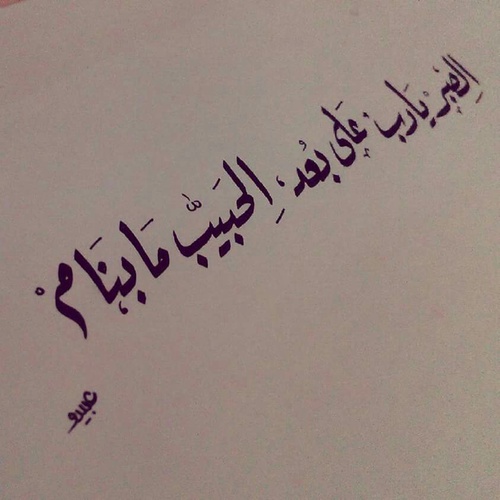 اِلصَبر يارَب عَلى بُعد اِلحَبيبّ مَا بنَامْ
عبير